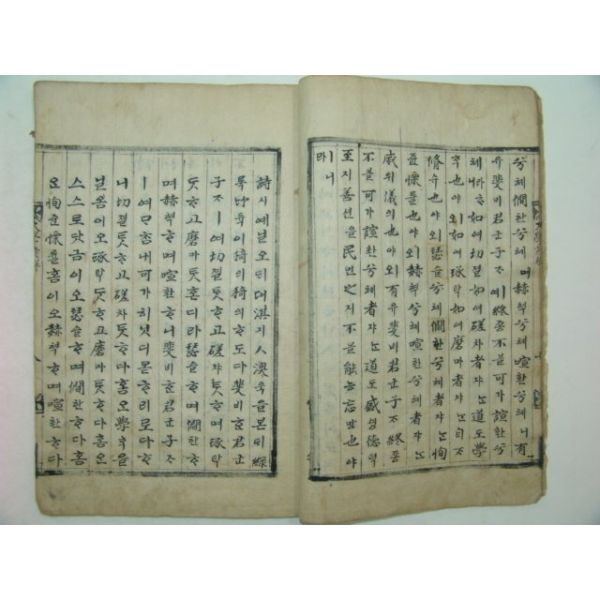 兮혜僩한兮혜며赫혁兮혜喧한兮혜니有
유斐비君군子ᄌᆞ여終죵不블可가諠한兮
혜라ᄒᆞ니如여切졀如여磋차者쟈ᄂᆞᆫ道도學
학也야ㅣ오如여琢탁如여磨마者쟈ᄂᆞᆫ自ᄌᆞ
脩슈也야ㅣ오瑟슬兮혜僩한兮혜者쟈ᄂᆞᆫ恂
슌慄률也야ㅣ오赫혁兮혜喧한兮혜者쟈ᄂᆞᆫ
威위儀의也야ㅣ오有유斐비君군子ᄌᆞ終죵
不블可가諠한兮혜者쟈ᄂᆞᆫ道도盛셩德덕
至지善션을民민之지不블能능忘망也야
ㅣ니
라
詩시예닐오ᄃᆡ뎌淇기人澳욱을본ᄃᆡ菉
록竹듁이猗의猗의ᄒᆞ도다斐비ᄒᆞᆫ君군
子ᄌᆞㅣ여切졀ᄐᆞᆺᄒᆞ고磋차ᄐᆞᆺᄒᆞ며琢탁
ᄐᆞᆺᄒᆞ고磨마ᄐᆞᆺᄒᆞᆫ디라瑟슬ᄒᆞ며僩한ᄒᆞ
며赫혁ᄒᆞ며喧한ᄒᆞ니斐비ᄒᆞᆫ君군子ᄌᆞ
ㅣ여ᄆᆞᄎᆞᆷ내可가히닛디몯ᄒᆞ리로다ᄒᆞ
니切졀ᄐᆞᆺᄒᆞ고磋차ᄐᆞᆺᄒᆞ다홈ᄋᆞᆫ學학을
닐옴이오琢탁ᄐᆞᆺᄒᆞ고磨마ᄐᆞᆺᄒᆞ다홈ᄋᆞᆫ
스스로닷금이오瑟슬ᄒᆞ며僩한ᄒᆞ다홈
ᄋᆞᆫ恂슌慄률홈이오赫혁ᄒᆞ며喧한ᄒᆞ다